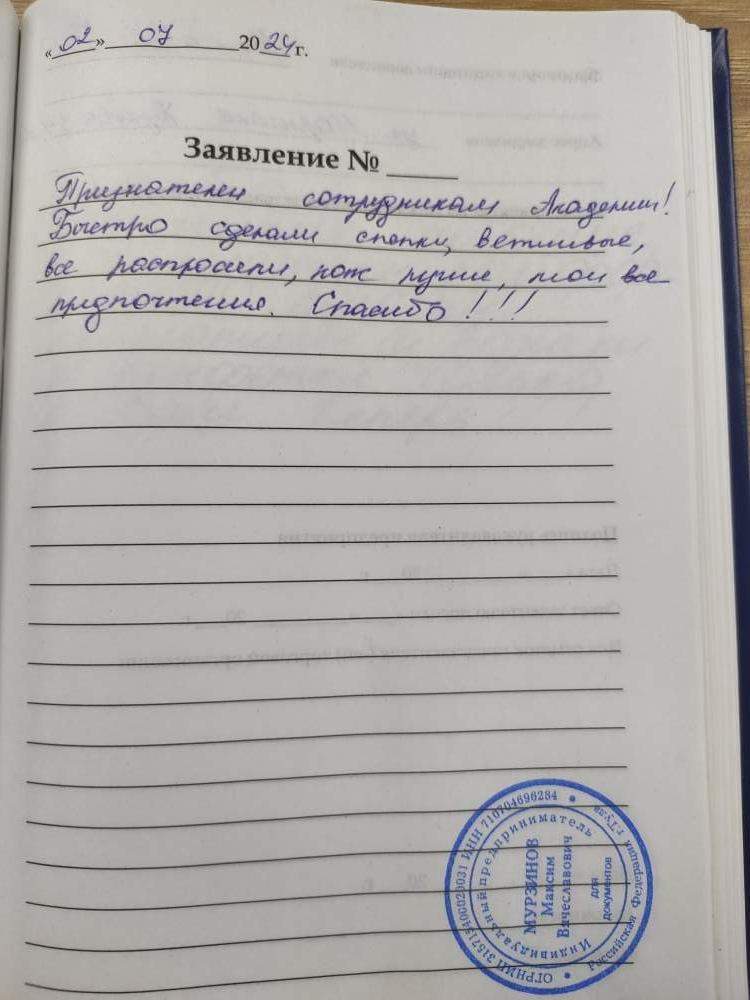 «02» 07 2024 г.
Заявление №
Признателен сотрудникам Академии!
Быстро сделали стельки, вежливые,
все распросили, как лучше, мои все
предпочтения. Спасибо!!!
Индивидуальный предприниматель
МУРЗИНОВ
Максим
Вячеславович
для
документов
Российская Федерация г.Тула
ИНН 710704696284
ОГРНИП